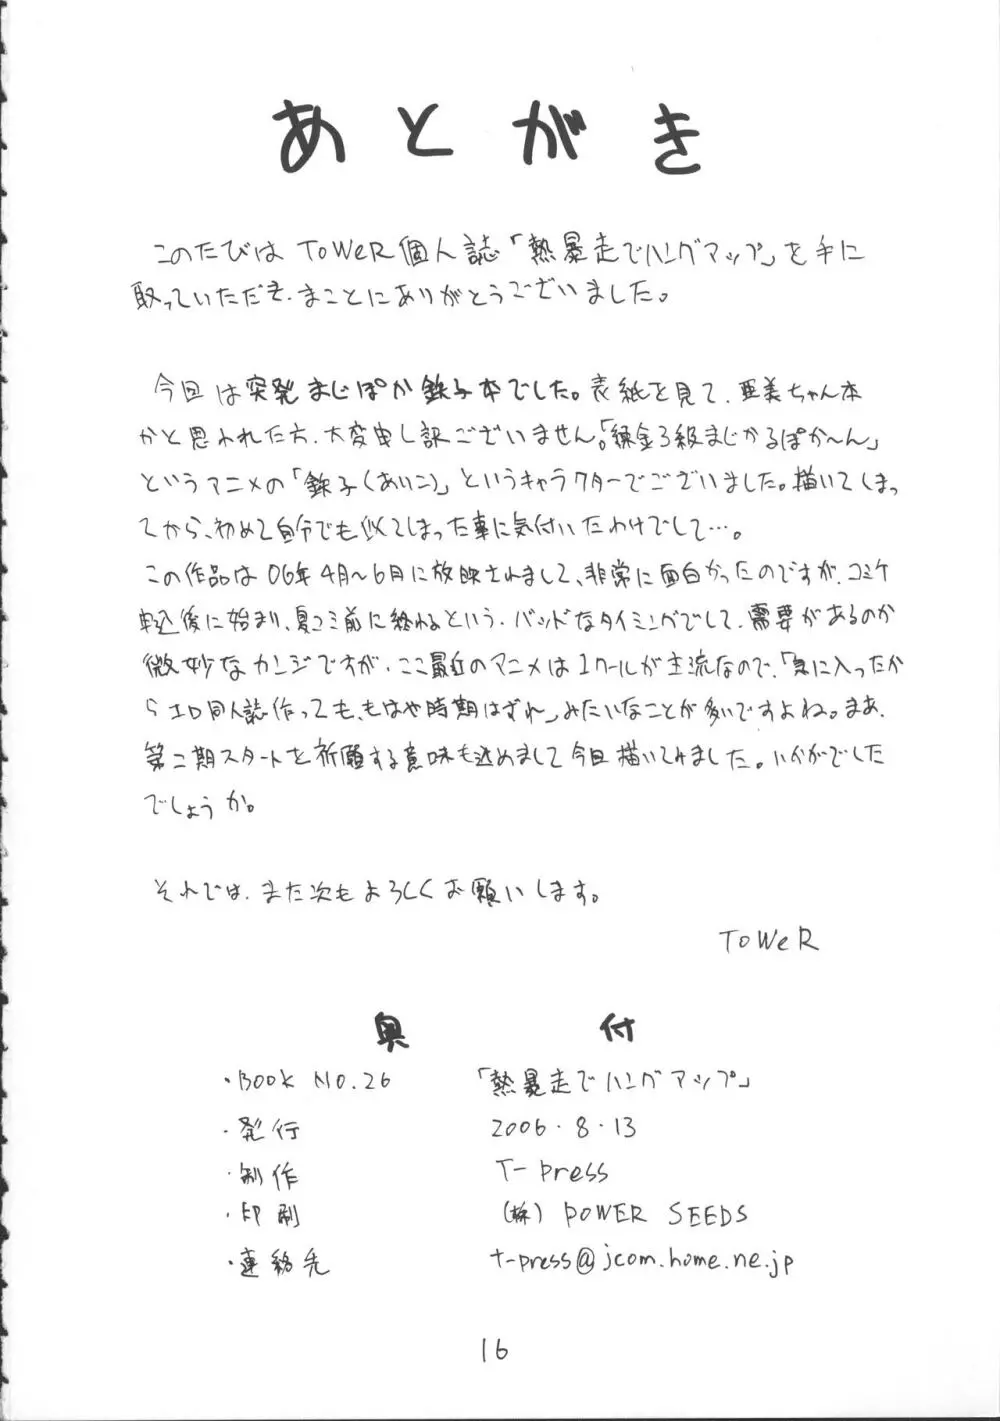 あとがき
このたびは ToWeR 個人誌「熱暴走でハングアップ」を手に
取っていただき、まことにありがとうございました。
今回は突発まじぽか鉄子本でした。表紙を見て、亜美ちゃん本
かと思われた方、大変申し訳ございません。「錬金3級まじかるぽか〜ん」
というアニメの「鉄子(あいこ)」というキャラクターでございました。描いてしまっ
てから、初めて自分でも似てしまった事に気付いたわけでして…。
この作品は06年4月〜6月に放映されまして、非常に面白かったのですが、コミケ
申込後に始まり、夏コミ前に終わるという、バッドなタイミングでして、需要があるのか
微妙なカンジですが、ここ最近のアニメは1クールが主流なので、「気に入ったか
らエロ同人誌作っても、もはや時期はずれ」みたいなことが多いですよね。まあ、
第二期スタートを祈願する意味も込めまして今回描いてみました。いかがでした
でしょうか。
それでは、また次もよろしくお願いします。
ToWeR
奥付
・BOOK NO.26 「熱暴走でハングアップ」
・発行 2006・8・13
・制作 T-press
・印刷 (株) POWER SEEDS
・連絡先 t-press@jcom.home.ne.jp
16